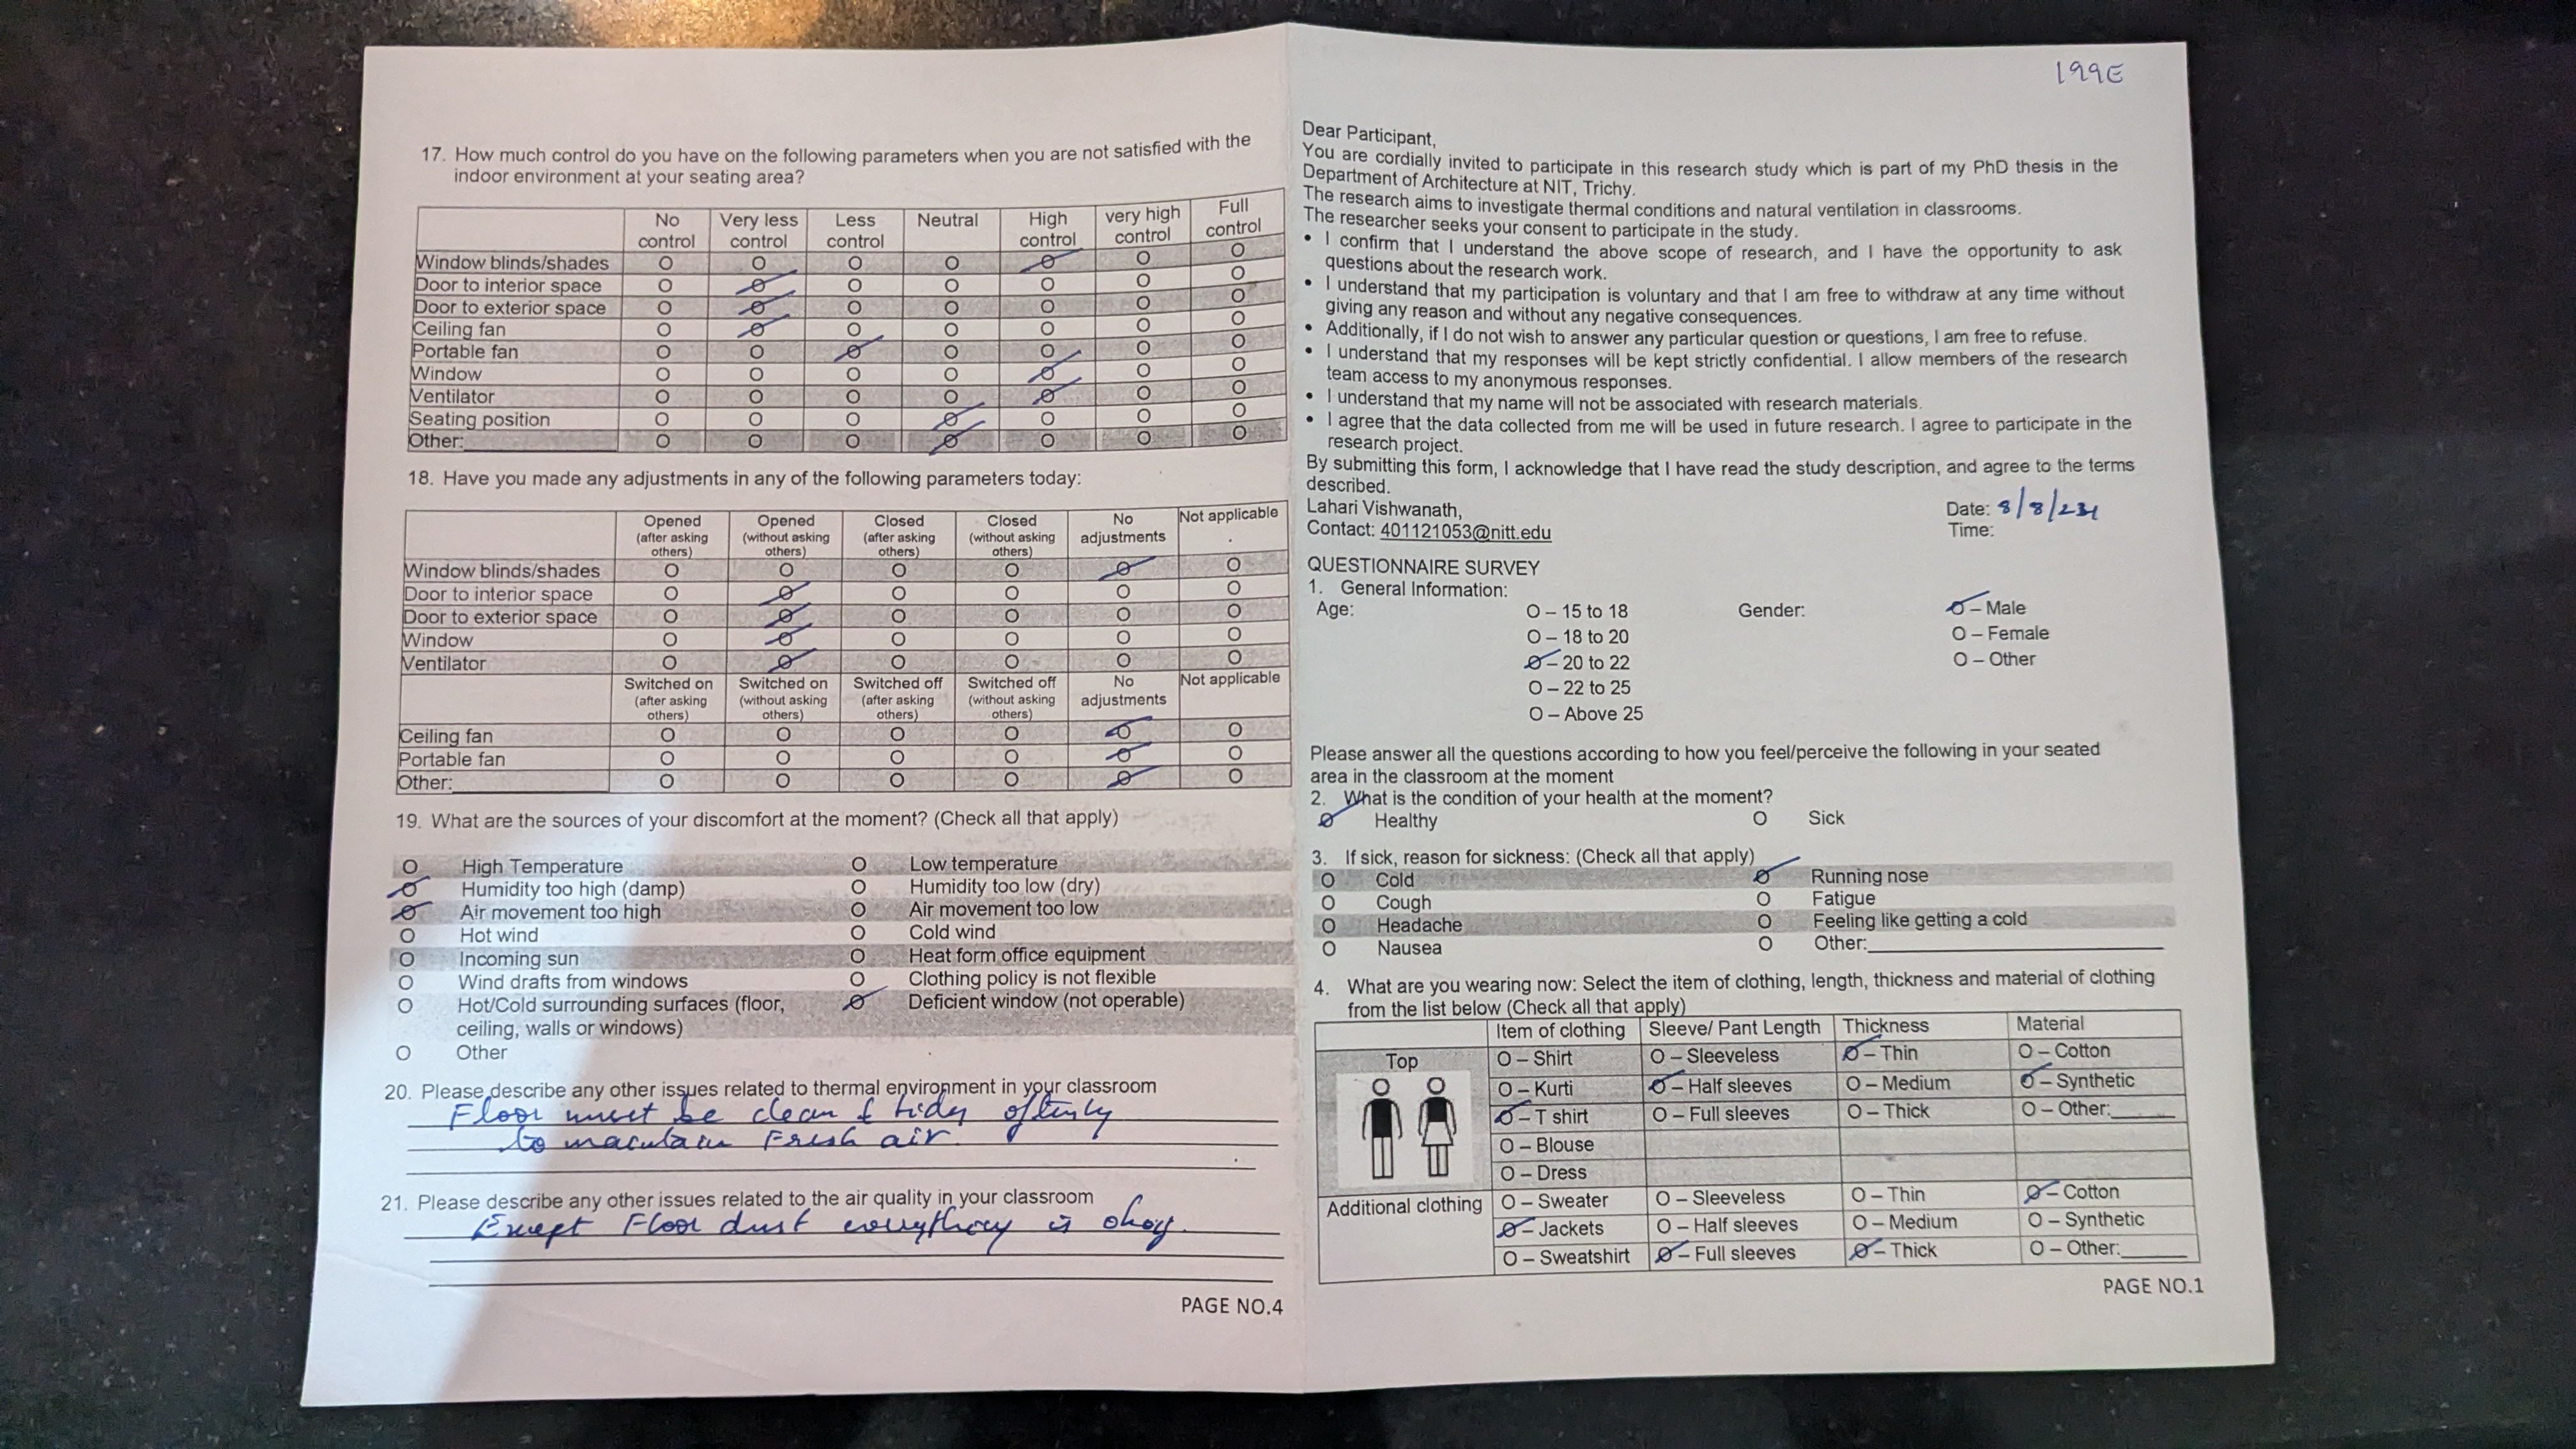 17. How much control do you have on the following parameters when you are not satisfied with the
indoor environment at your seating area?
No control Very less control Less control Neutral High control very high control Full control
Window blinds/shades O O O O O O O
Door to interior space O O O O O O O
Door to exterior space O O O O O O O
Ceiling fan O O O O O O O
Portable fan O O O O O O O
Window O O O O O O O
Ventilator O O O O O O O
Seating position O O O O O O O
Other:________ O O O O O O O
18. Have you made any adjustments in any of the following parameters today:
Opened (after asking others) Opened (without asking others) Closed (after asking others) Closed (without asking others) No adjustments Not applicable
Window blinds/shades O O O O O O
Door to interior space O O O O O O
Door to exterior space O O O O O O
Window O O O O O O
Ventilator O O O O O O
Switched on (after asking others) Switched on (without asking others) Switched off (after asking others) Switched off (without asking others) No adjustments Not applicable
Ceiling fan O O O O O O
Portable fan O O O O O O
Other:________ O O O O O O
19. What are the sources of your discomfort at the moment? (Check all that apply)
O High Temperature O Low temperature
O Humidity too high (damp) O Humidity too low (dry)
O Air movement too high O Air movement too low
O Hot wind O Cold wind
O Incoming sun O Heat form office equipment
O Wind drafts from windows O Clothing policy is not flexible
O Hot/Cold surrounding surfaces (floor, O Deficient window (not operable)
ceiling, walls or windows)
O Other
20. Please describe any other issues related to thermal environment in your classroom
Floor must be clean & tidy oftenly
to maintain Fresh air.
21. Please describe any other issues related to the air quality in your classroom
Except Floor dust everything is okay.
PAGE NO.4
199E
Dear Participant,
You are cordially invited to participate in this research study which is part of my PhD thesis in the
Department of Architecture at NIT, Trichy.
The research aims to investigate thermal conditions and natural ventilation in classrooms.
The researcher seeks your consent to participate in the study.
• I confirm that I understand the above scope of research, and I have the opportunity to ask
questions about the research work.
• I understand that my participation is voluntary and that I am free to withdraw at any time without
giving any reason and without any negative consequences.
• Additionally, if I do not wish to answer any particular question or questions, I am free to refuse.
• I understand that my responses will be kept strictly confidential. I allow members of the research
team access to my anonymous responses.
• I understand that my name will not be associated with research materials.
• I agree that the data collected from me will be used in future research. I agree to participate in the
research project.
By submitting this form, I acknowledge that I have read the study description, and agree to the terms
described.
Lahari Vishwanath, Date: 8/8/
Contact: 401121053@nitt.edu Time:
QUESTIONNAIRE SURVEY
1. General Information:
Age: O – 15 to 18 Gender: O – Male
O – 18 to 20 O – Female
O – 20 to 22 O – Other
O – 22 to 25
O – Above 25
Please answer all the questions according to how you feel/perceive the following in your seated
area in the classroom at the moment
2. What is the condition of your health at the moment?
O Healthy O Sick
3. If sick, reason for sickness: (Check all that apply)
O Cold O Running nose
O Cough O Fatigue
O Headache O Feeling like getting a cold
O Nausea O Other:________
4. What are you wearing now: Select the item of clothing, length, thickness and material of clothing
from the list below (Check all that apply)
Item of clothing Sleeve/ Pant Length Thickness Material
Top O – Shirt O – Sleeveless O – Thin O – Cotton
O – Kurti O – Half sleeves O – Medium O – Synthetic
O – T shirt O – Full sleeves O – Thick O – Other:______
O – Blouse
O – Dress
Additional clothing O – Sweater O – Sleeveless O – Thin O – Cotton
O – Jackets O – Half sleeves O – Medium O – Synthetic
O – Sweatshirt O – Full sleeves O – Thick O – Other:______
PAGE NO.1